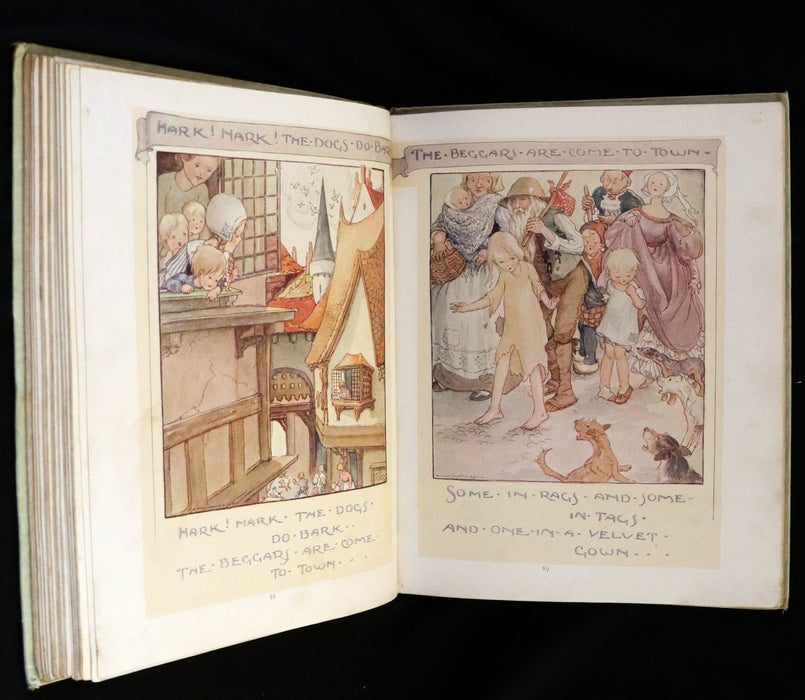 HARK! HARK! THE·DOGS·DO·BARK
HARK! HARK· THE· DOGS·
DO· BARK··
THE· BEGGARS· ARE· COME·
TO· TOWN· · ·
THE· BEGGARS· ARE· COME· TO· TOWN·
SOME· IN· RAGS· AND· SOME·
IN· TAGS·
AND· ONE· IN· A· VELVET·
GOWN· · ·